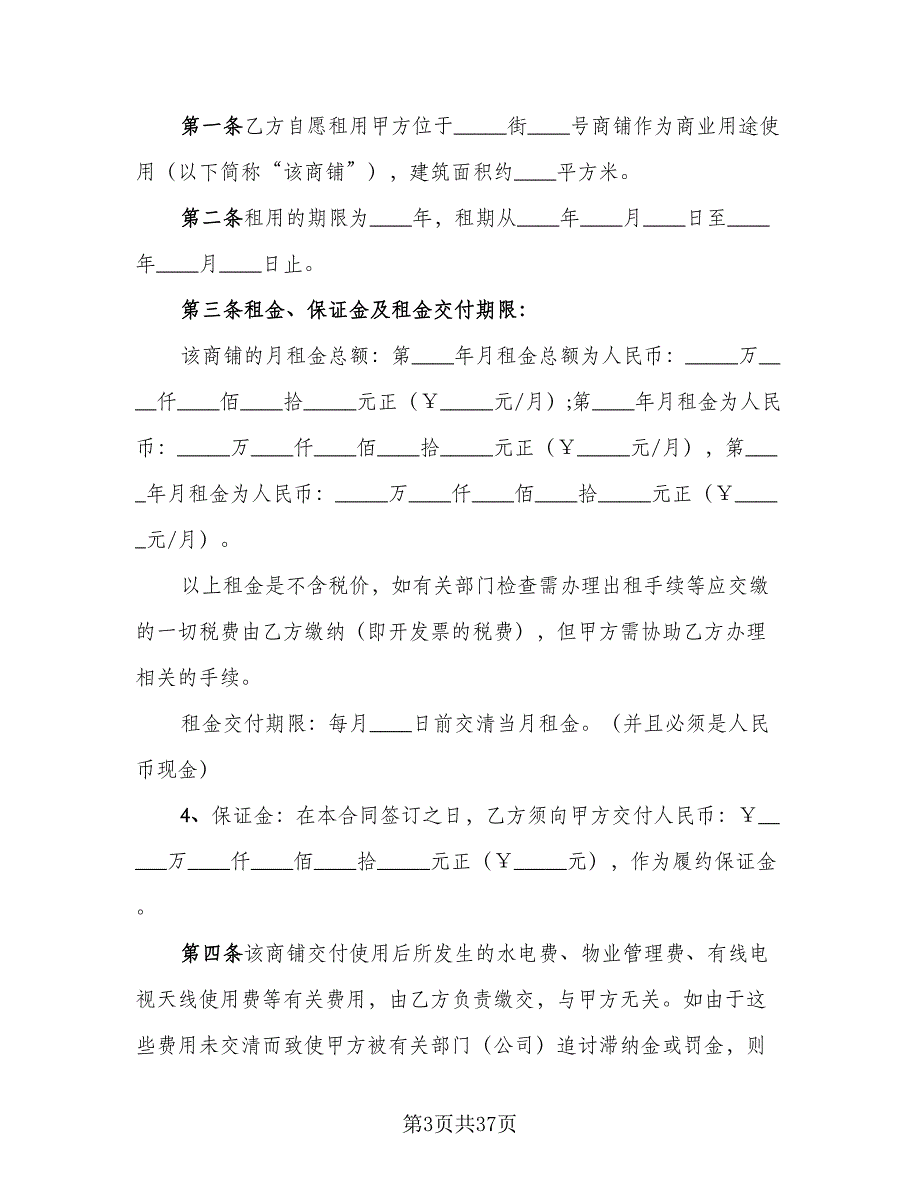 第一条乙方自愿租用甲方位于_____街____号商铺作为商业用途使
用（以下简称“该商铺”），建筑面积约____平方米。
第二条租用的期限为____年，租期从____年____月____日至____
年____月____日止。
第三条租金、保证金及租金交付期限：
该商铺的月租金总额：第____年月租金总额为人民币：_____万__
__仟____佰____拾_____元正（￥_____元/月）;第____年月租金为人民
币：_____万____仟____佰____拾_____元正（￥_____元/月），第___
_年月租金为人民币：_____万____仟____佰____拾_____元正（￥____
_元/月）。
以上租金是不含税价，如有关部门检查需办理出租手续等应交缴
的一切税费由乙方缴纳（即开发票的税费），但甲方需协助乙方办理
相关的手续。
租金交付期限：每月____日前交清当月租金。（并且必须是人民
币现金）
4、保证金：在本合同签订之日，乙方须向甲方交付人民币：￥__
___万____仟____佰____拾_____元正（￥_____元），作为履约保证金
。
第四条该商铺交付使用后所发生的水电费、物业管理费、有线电
视天线使用费等有关费用，由乙方负责缴交，与甲方无关。如由于这
些费用未交清而致使甲方被有关部门（公司）追讨滞纳金或罚金，则
第3页共37页